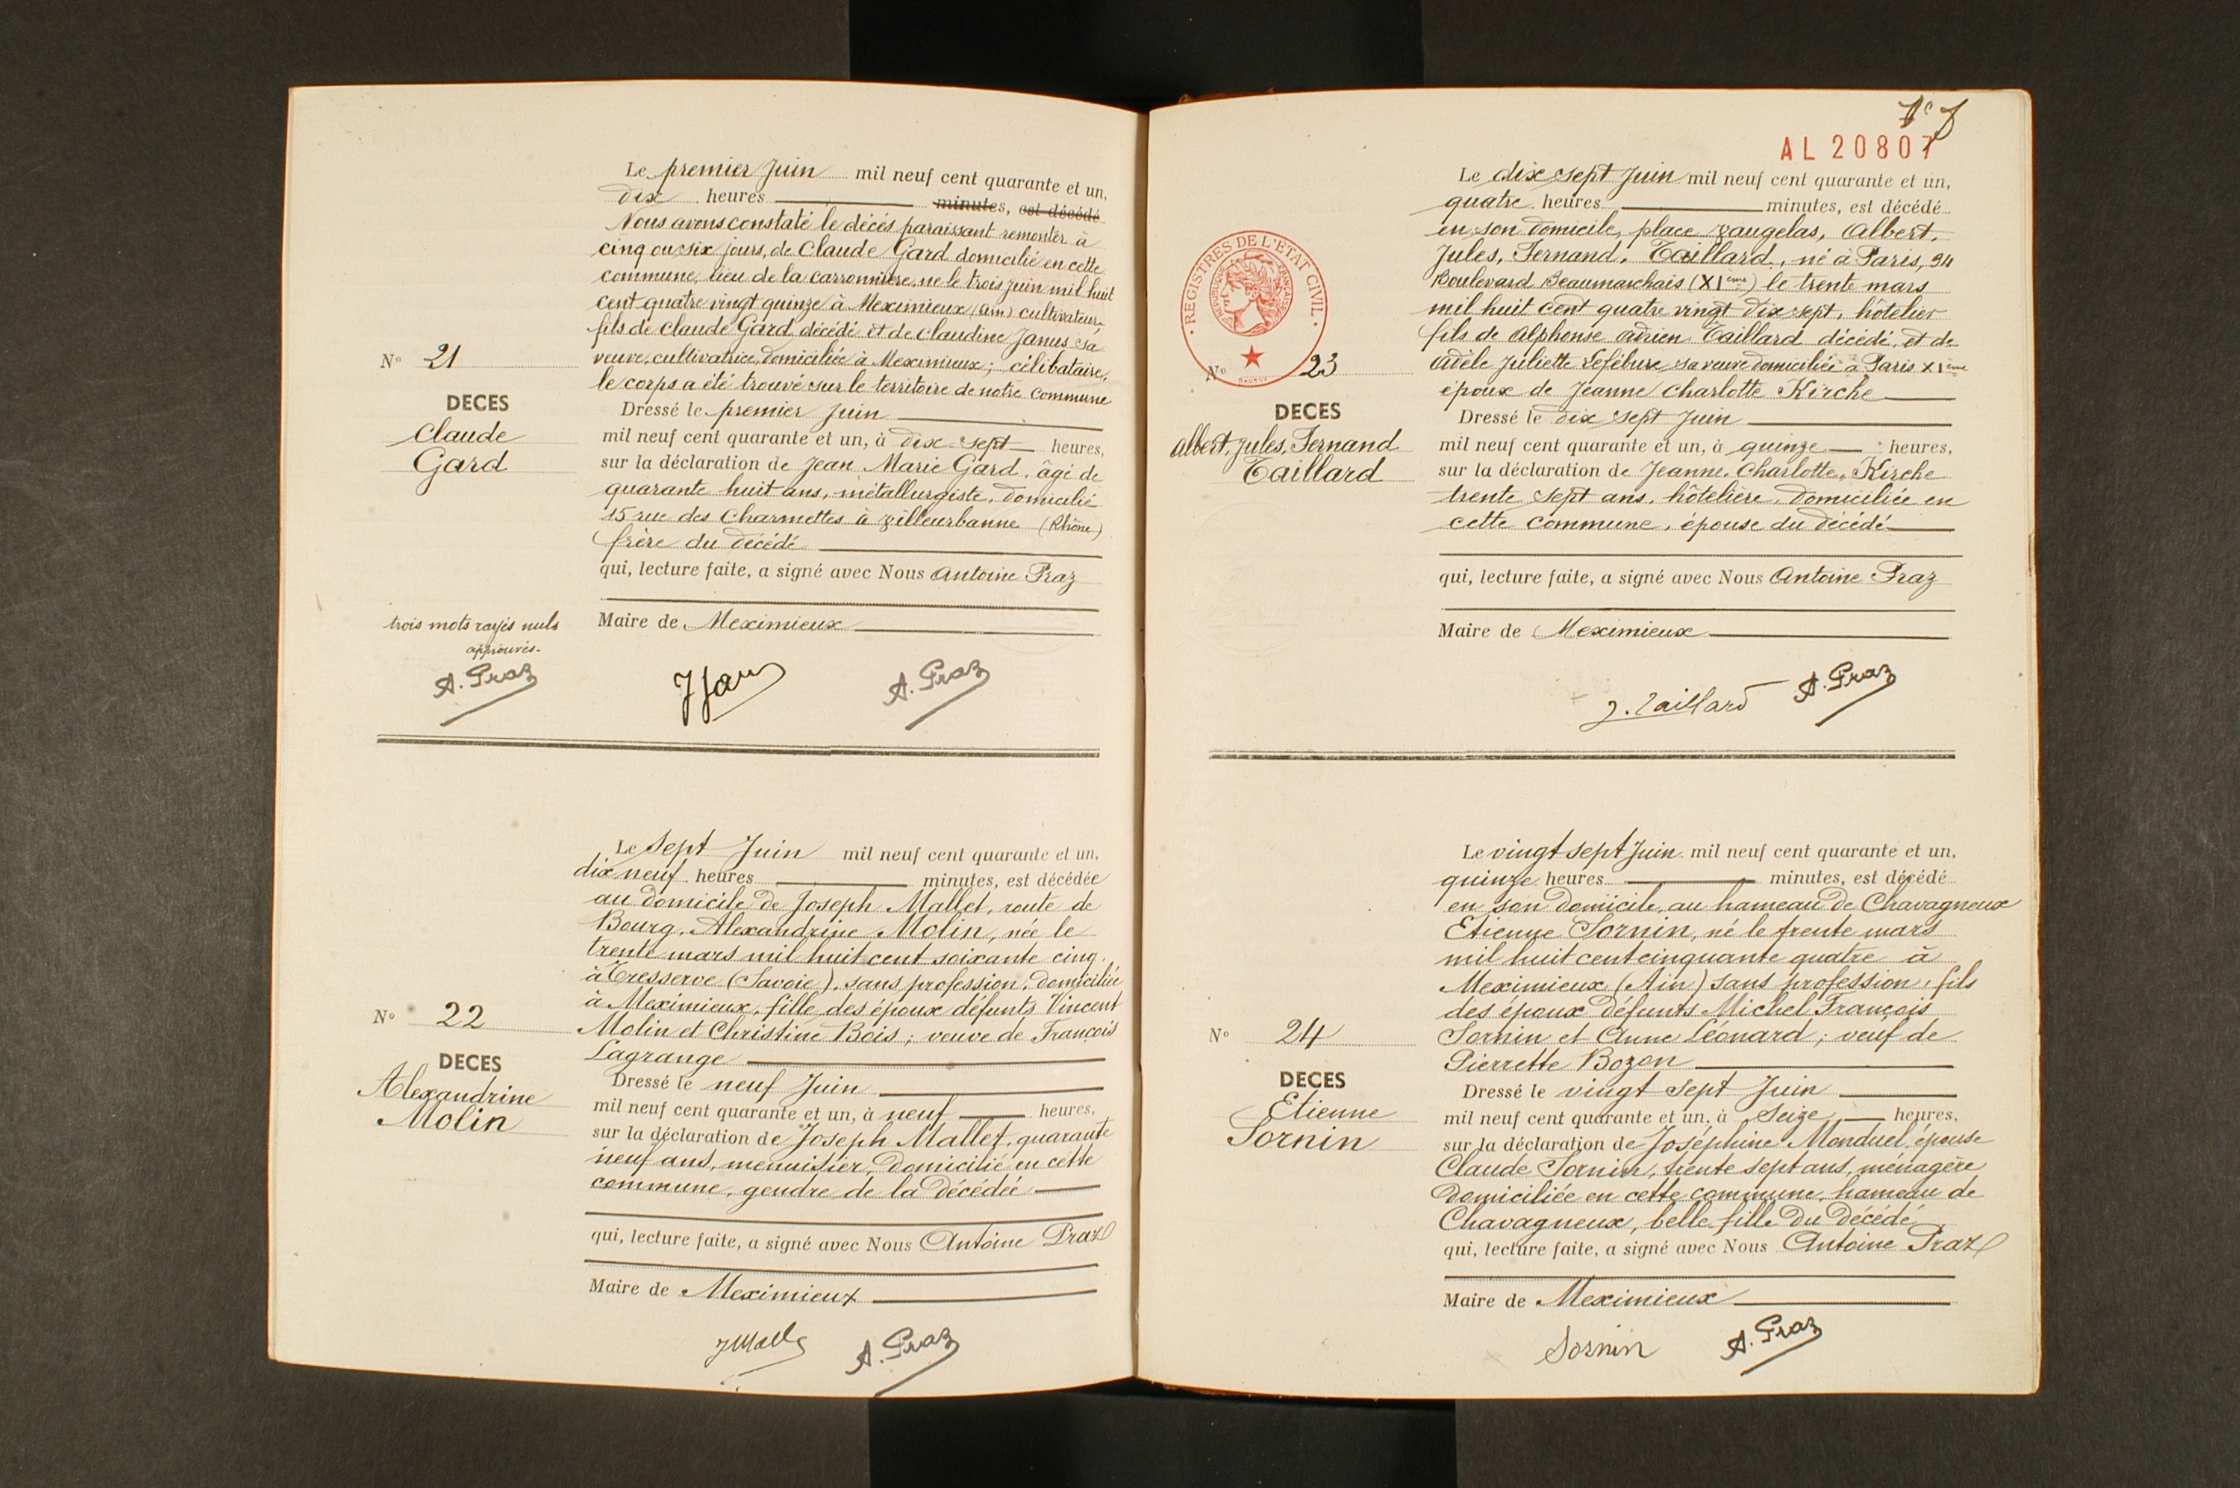 Le premier Juin mil neuf cent quarante et un,
dix heures minutes, est décédé
Nous avons constaté le décès paraissant remonter à
cinq ou six jours, de Claude Gard domicilié en cette
commune, lieu de la carronnière, né le trois juin mil huit
cent quatre vingt quinze à Meximieux (Ain) cultivateur,
fils de Claude Gard décédé et de Claudine Janus sa
veuve, cultivatrice, domiciliée à Meximieux ; célibataire,
le corps a été trouvé sur le territoire de notre commune
N° 21
DECES
Claude
Gard
Dressé le premier Juin
mil neuf cent quarante et un, à dix-sept heures,
sur la déclaration de Jean Marie Gard, âgé de
quarante huit ans, métallurgiste, domicilié
15 rue des Charmettes à Villeurbanne (Rhône)
frère du décédé
qui, lecture faite, a signé avec Nous Antoine Praz
Maire de Meximieux
trois mots rayés nuls
approuvés.
A. Praz
A. Praz
Le Sept Juin mil neuf cent quarante et un,
dix neuf heures minutes, est décédée
au domicile de Joseph Mallet, route de
Bourg, Alexandrine Molin, née le
trente mars mil huit cent soixante cinq
à Tresserve (Savoie), sans profession, domiciliée
à Meximieux, fille des époux défunts Vincent
Molin et Christine Bois ; veuve de François
Lagrange
N° 22
DECES
Alexandrine
Molin
Dressé le neuf Juin
mil neuf cent quarante et un, à neuf heures,
sur la déclaration de Joseph Mallet, quarante
neuf ans, menuisier, domicilié en cette
commune, gendre de la décédée
qui, lecture faite, a signé avec Nous Antoine Praz
Maire de Meximieux
A. Praz
AL 20807
REGISTRES DE L'ETAT CIVIL
Le dix sept Juin mil neuf cent quarante et un,
quatre heures minutes, est décédé
en son domicile, place Vaugelas, Albert,
Jules, Fernand, Taillard, né à Paris, 94
Boulevard Beaumarchais (XIème) le trente mars
mil huit cent quatre vingt dix sept, hôtelier
fils de Alphonse Adrien Taillard décédé, et de
Adèle Juliette Lefébure, sa veuve domiciliée à Paris XIème
époux de Jeanne Charlotte Kirche
N° 23
DECES
Albert, Jules, Fernand
Taillard
Dressé le dix sept Juin
mil neuf cent quarante et un, à quinze heures,
sur la déclaration de Jeanne, Charlotte, Kirche
trente sept ans, hôtelière, domiciliée en
cette commune, épouse du décédé
qui, lecture faite, a signé avec Nous Antoine Praz
Maire de Meximieux
J. Taillard A. Praz
Le vingt sept Juin mil neuf cent quarante et un,
quinze heures minutes, est décédé
en son domicile, au hameau de Chavagneux
Etienne Sornin, né le trente mars
mil huit cent cinquante quatre à
Meximieux (Ain) sans profession, fils
des époux défunts Michel François
Sornin et Anne Léonard ; veuf de
Pierrette Bozon
N° 24
DECES
Etienne
Sornin
Dressé le vingt sept Juin
mil neuf cent quarante et un, à Seize heures,
sur la déclaration de Joséphine Monduel, épouse
Claude Sornin, trente sept ans, ménagère
domiciliée en cette commune, hameau de
Chavagneux, belle-fille du décédé
qui, lecture faite, a signé avec Nous Antoine Praz
Maire de Meximieux
Sornin A. Praz